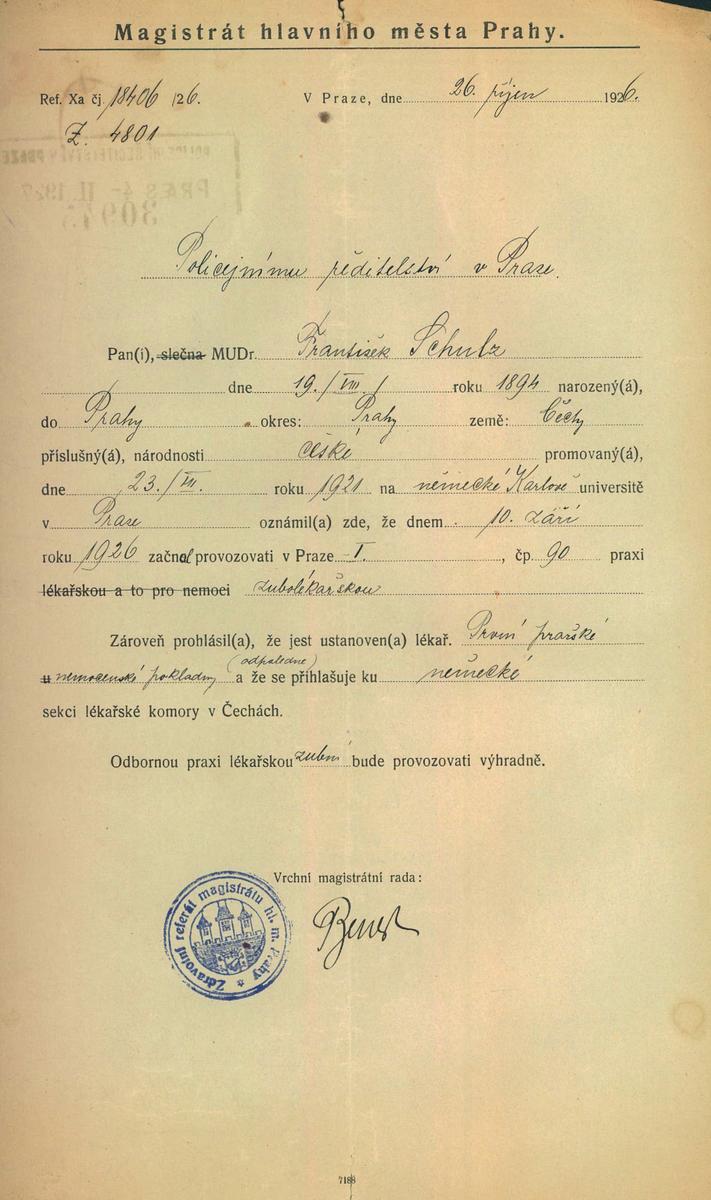 Magistrát hlavního města Prahy.
Ref. Xa čj. 18406 /26. V Praze, dne 26. říjen 1926.
Z. 4801
PRAES 4- II. 1927
30973
Policejnímu ředitelství v Praze.
Pan(i), slečna MUDr. František Schulz
dne 19./VIII./ roku 1894 narozený(á),
do Prahy okres: Prahy země: Čechy
příslušný(á), národnosti české promovaný(á),
dne 23./VII. roku 1921 na německé Karlově universitě
v Praze oznámil(a) zde, že dnem 10. září
roku 1926 začnal provozovati v Praze -I. , čp. 90 praxi
lékařskou a to pro nemoci zubolékařskou
Zároveň prohlásil(a), že jest ustanoven(a) lékař. První pražské
u nemocenské pokladny (odpoledne) a že se přihlašuje ku německé
sekci lékařské komory v Čechách.
Odbornou praxi lékařskou zubní bude provozovati výhradně.
Vrchní magistrátní rada:
Zdravotní referát magistrátu hl. m. Prahy
7188